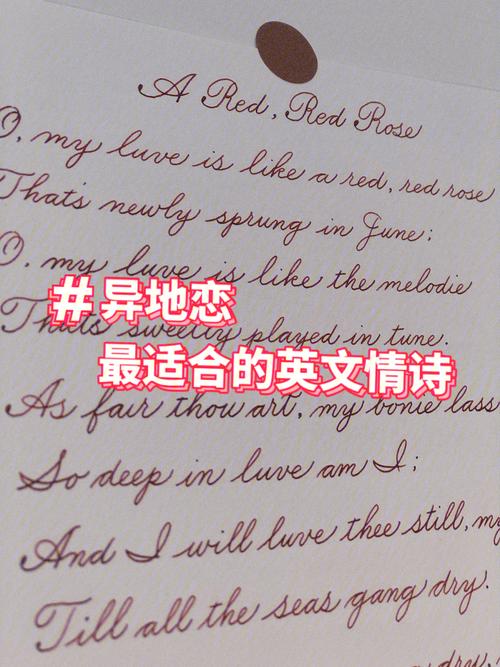 A Red, Red Rose
O, my luve is like a red, red rose
That's newly sprung in June;
O, my luve is like the melodie
#异地恋
That's sweetly played in tune.
最适合的英文情诗
As fair thou art, my bonie lass
So deep in luve am I;
And I will luve thee still, my
Till all the seas gang dry.
dry,